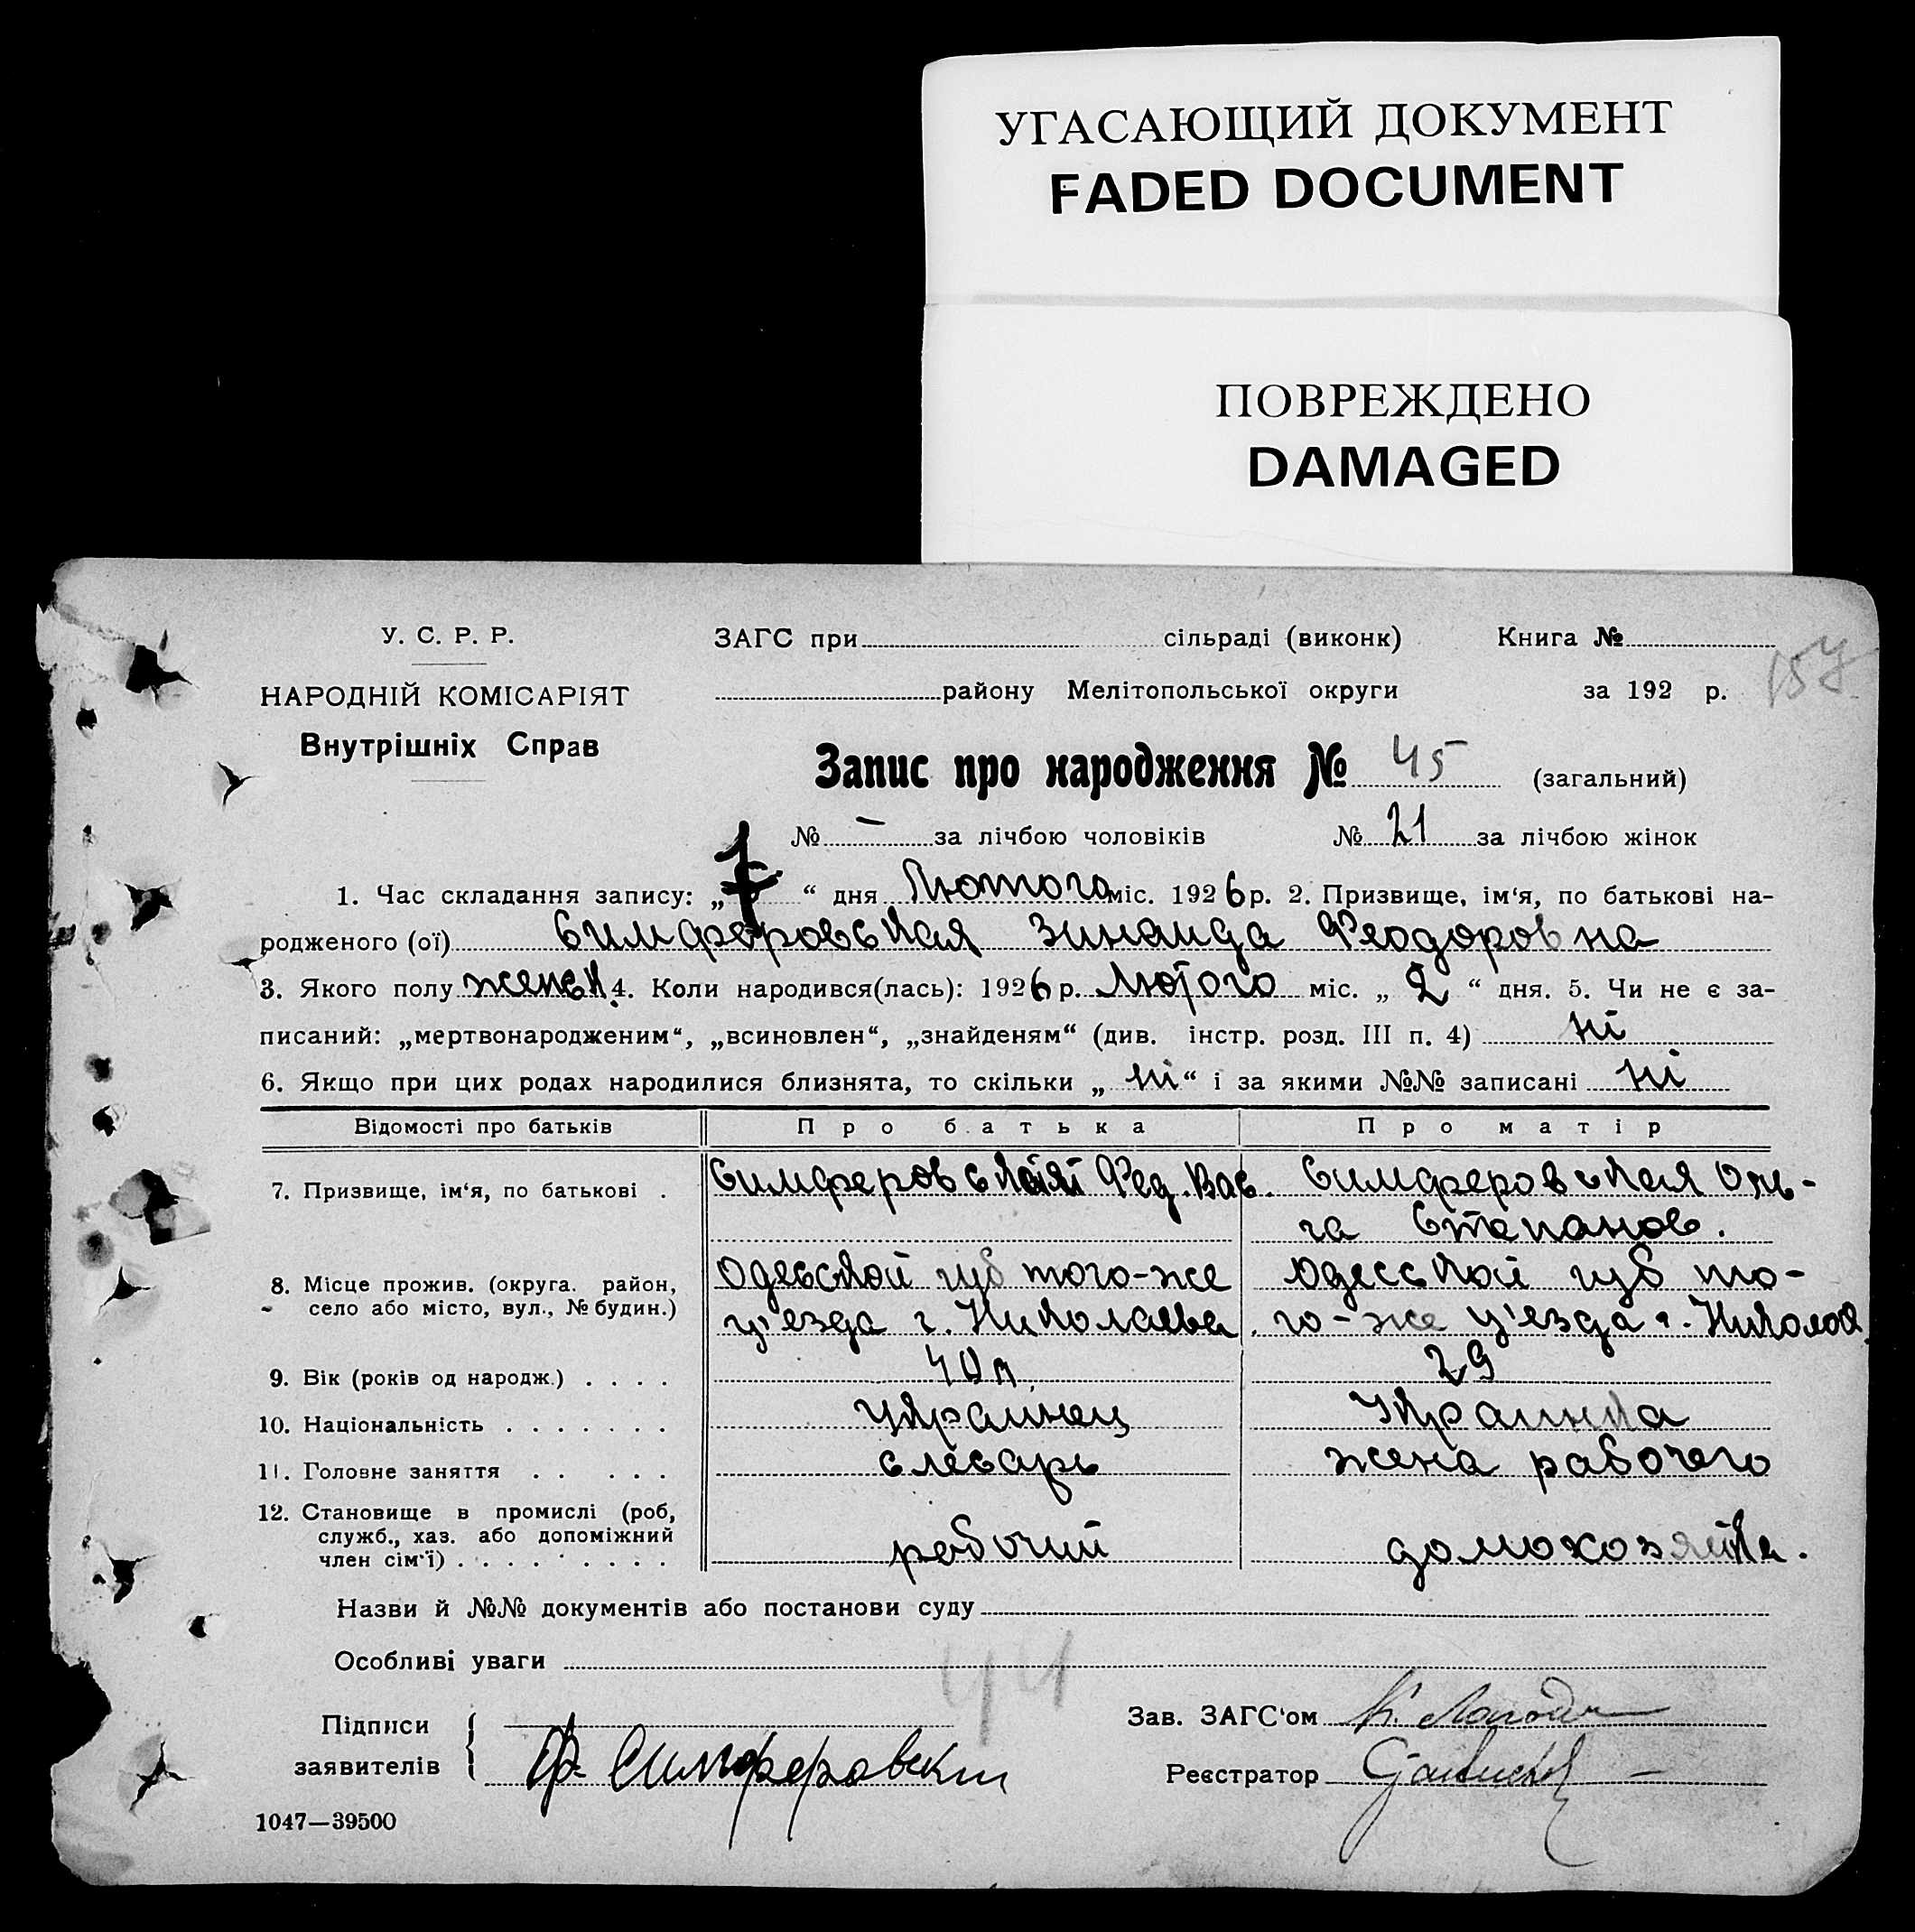 УГАСАЮЩИЙ ДОКУМЕНТ
FADED DOCUMENT
ПОВРЕЖДЕНО
DAMAGED
У. С. Р. Р.
НАРОДНІЙ КОМІСАРІЯТ
Внутрішніх Справ
ЗАГС при сільраді (виконк) Книга №
району Мелітопольської округи за 192 р.
Запис про народження № 45 (загальний)
№ – за лічбою чоловіків № 21 за лічбою жінок
1. Час складання запису: „7“ дня Лютого міс. 1926 р. 2. Призвище, ім‘я, по батькові на-
родженого (ої) Симферовская Зинаида Феодоровна
3. Якого полу женск 4. Коли народився(лась): 1926 р. Лютого міс. „2“ дня. 5. Чи не є за-
писаний: „мертвонародженим“, „всиновлен“, „знайденям“ (див. інстр. розд. III п. 4) ні
6. Якщо при цих родах народилися близнята, то скільки „ні“ і за якими №№ записані ні
Відомості про батьків Про батька Про матір
7. Призвище, ім‘я, по батькові . Симферовский Фед. Вас. Симферовская Оль-
га Степанов.
8. Місце прожив. (округа. район, Одесской губ того-же Одесской губ то-
село або місто, вул., № будин.) у'езда г. Николаева го-же у'езда г. Николаев
9. Вік (років од народж.) . . . . 40 л. 29
10. Національність . . . . . . . Украинец Украинка
11. Головне заняття . . . . . слесарь жена рабочего
12. Становище в промислі (роб,
служб., хаз. або допоміжний
член сім‘ї) . . . . . . . . . рабочий домохозяйка.
Назви й №№ документів або постанови суду
Особливі уваги
44
Підписи
заявителів
Ф. Симферовский
Зав. ЗАГС‘ом
Реєстратор
1047—39500